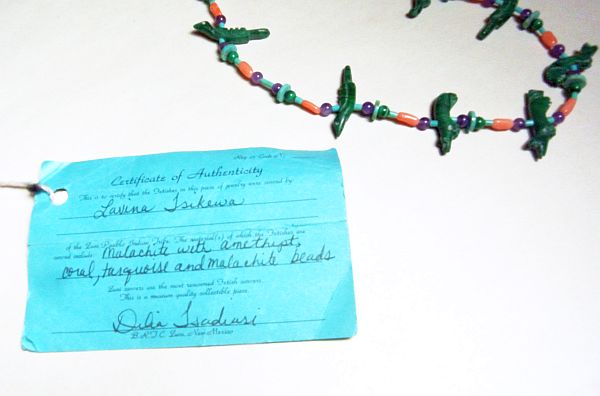 Certificate of Authenticity
This is to certify that the Fetishes in this piece of jewelry were carved by
Lavina Tsikewa
of the Zuni Pueblo Indian Tribe. The material(s) of which the Fetishes are
carved include: Malachite with amethyst,
coral, turquoise and malachite beads
Zuni carvers are the most renowned Fetish carvers.
This is a museum quality collectible piece.
Zuni, New Mexico